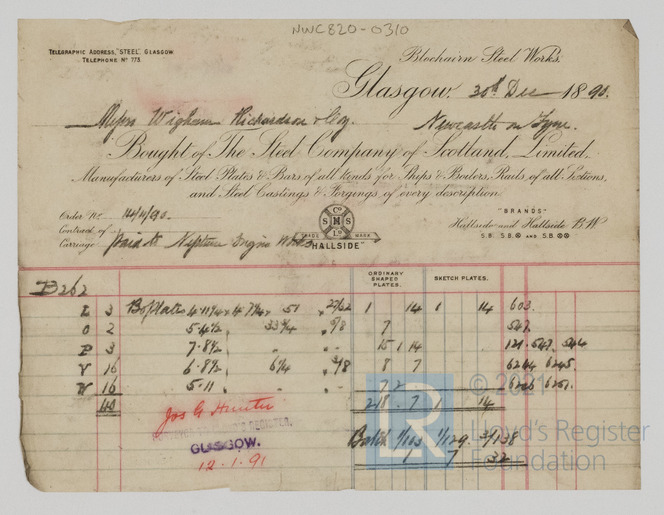 NWC820-0310
TELEGRAPHIC ADDRESS, "STEEL", GLASGOW.
TELEPHONE No 773.
Blochairn Steel Works.
Glasgow, 30th Dec 1890.
Messrs Wigham Richardson & Coy.
Newcastle on Tyne.
Bought of The Steel Company of Scotland, Limited.
Manufacturers of Steel Plates & Bars of all kinds for Ships & Boilers, Rails of all Sections,
and Steel Castings & Forgings of every description.
Order No
Contract of
Carriage Paid to Neptune Engine Works
Co
S H S
LD
TRADE MARK
"HALLSIDE"
"BRANDS"
Hallside and Hallside B.W
S.B. S.B. AND S.B.
ORDINARY SHAPED PLATES.
SKETCH PLATES.
B262
3 Bo Plates 1 14 1 14 603.
O 2 5.4½ 33¾ 7 547.
P 3 7.8½ 15 1 14
V 16 6.8½ 6¾ 8 7 6244 6245.
W 16 5.11 7 2
40 218 7 1 14
Jos G. Hunter
GLASGOW.
12.1.91
7 32
© 2021
LR
Lloyd's Register
Foundation